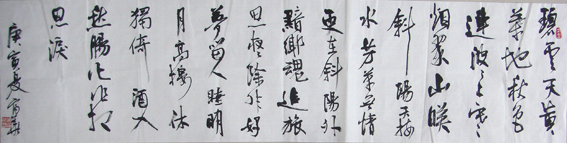 碧雲天黃
葉地秋色
連波々上寒
煙翠山映
斜陽天接
水芳草無情
更在斜陽外
黯鄉魂追旅
思夜除非好
夢留人睡明
月高樓休
獨倚酒入
愁腸化作相
思淚
庚寅夏